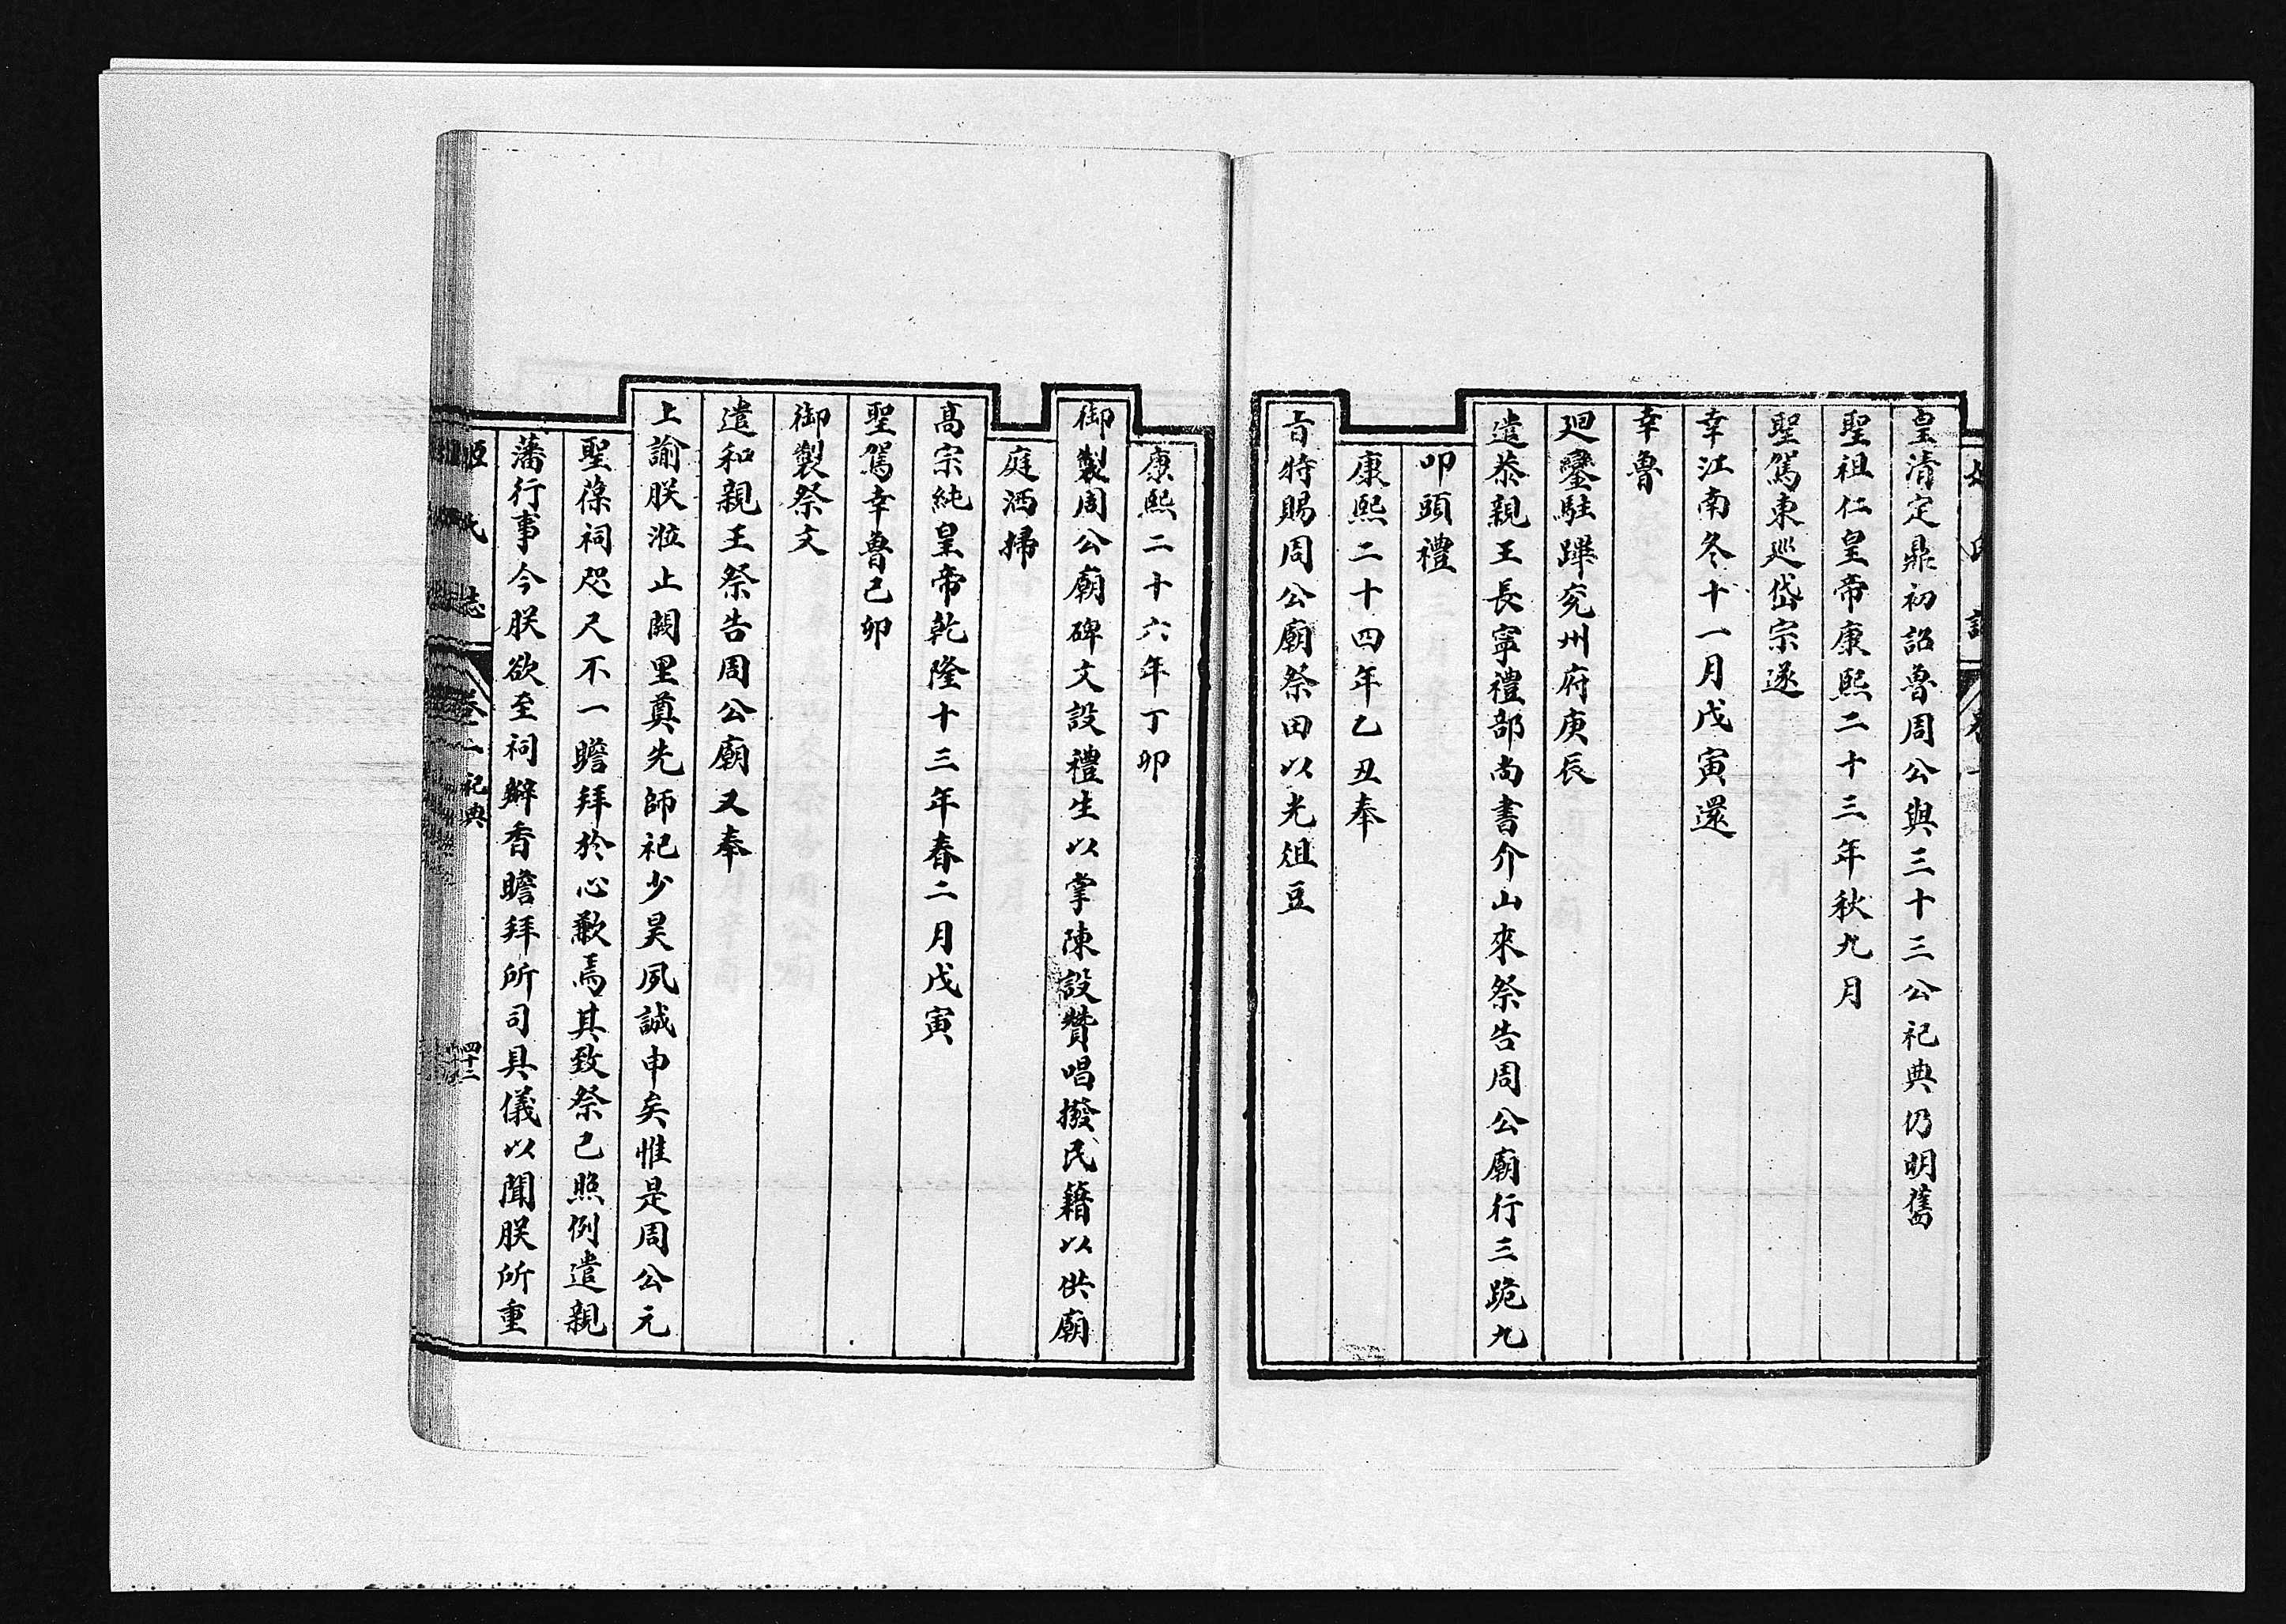 皇清定鼎初詔魯周公與三十三公祀典仍明舊
聖祖仁皇帝康熙二十三年秋九月
聖駕東巡岱宗遂
幸江南冬十一月戊寅還
幸魯
廻鑾駐蹕兖州府庚辰
遣恭親王長寧禮部尚書介山來祭告周公廟行三跪九
叩頭禮
康熙二十四年乙丑奉
旨特賜周公廟祭田以光俎豆
康熙二十六年丁卯
御製周公廟碑文設禮生以掌陳設贊唱撥民籍以供廟
庭洒掃
高宗純皇帝乾隆十三年春二月戊寅
聖駕幸魯己卯
御製祭文
遣和親王祭告周公廟又奉
上諭朕涖止闕里奠先師祀少昊夙誠申矣惟是周公元
聖葆祠咫尺不一瞻拜於心歉焉其致祭己照例遣親
藩行事今朕欲至祠辦香瞻拜所司具儀以聞朕所重
姬氏志 卷一 祀典 四十二